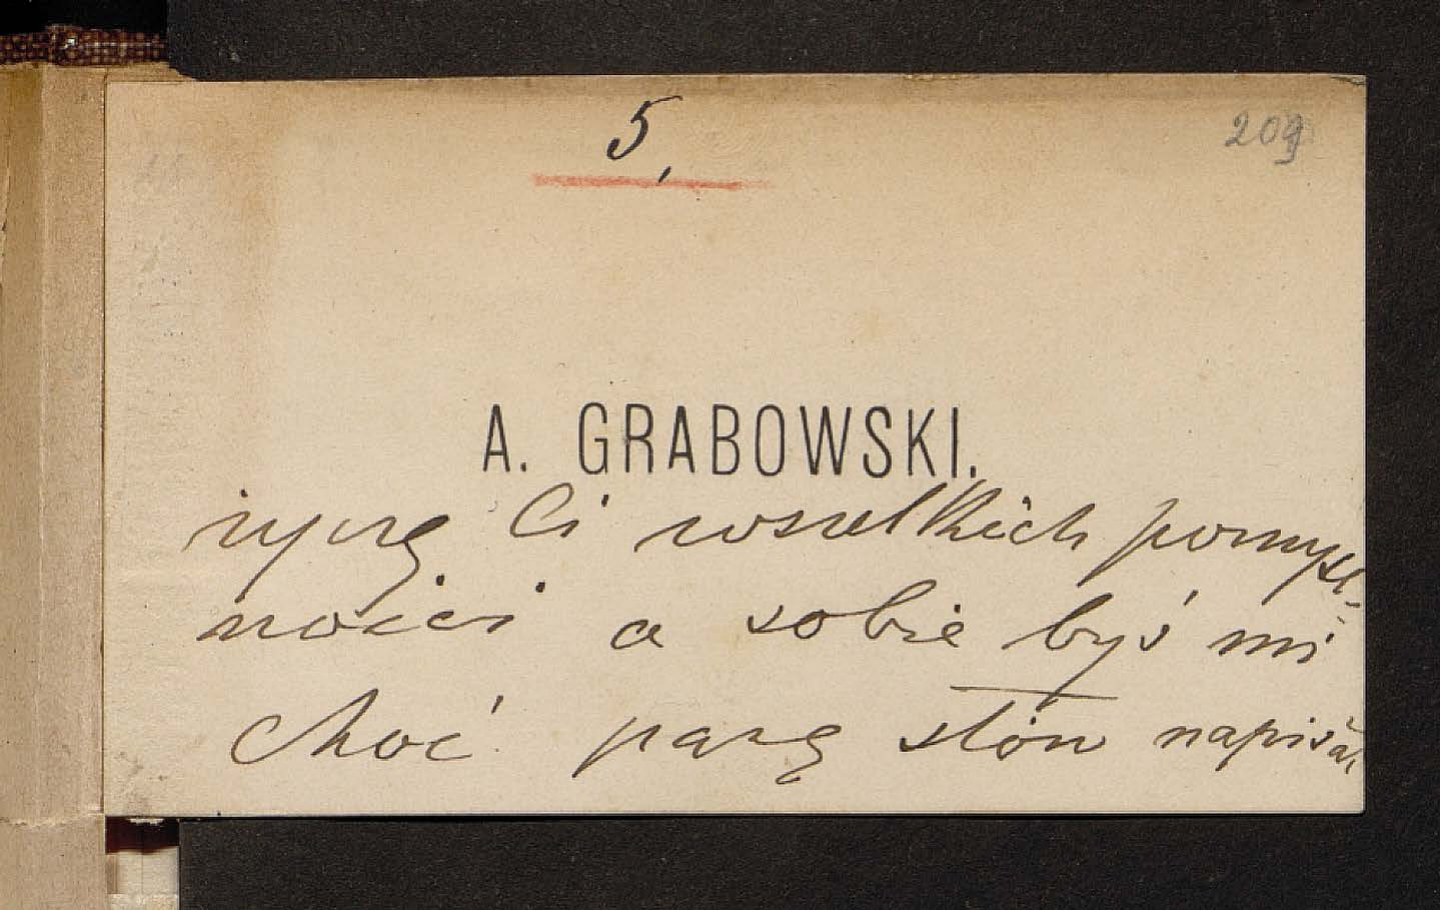 5,
209
A. GRABOWSKI.
życzę Ci wszelkich pomyśl-
ności a sobie byś mi
choć parę słów napisał